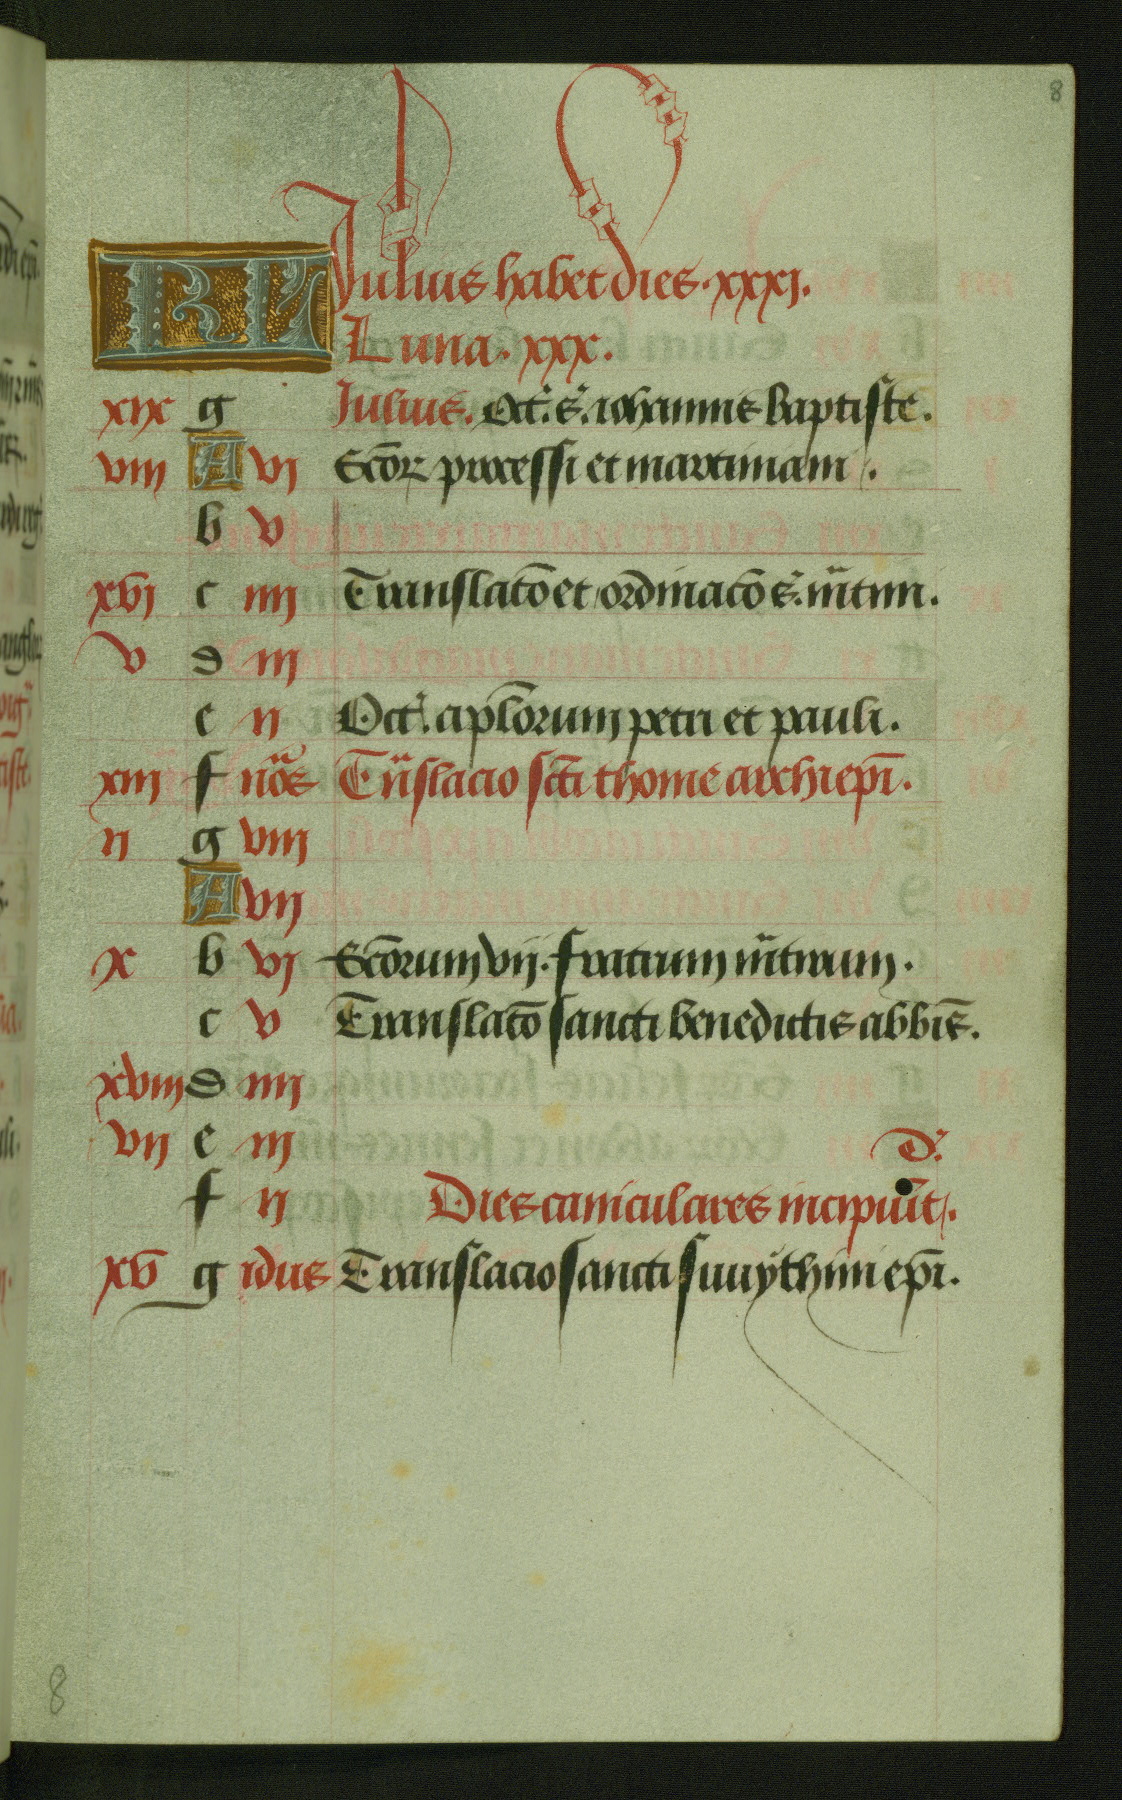 8
KL Julius habet dies· xxxj.
Luna· xxx.
xix g Julius. Oct̄. s̄. iohannis baptiste.
viij A vj Scōꝝ processi et martiniani.
b v
xvj c iiij Translatō et ordinatō s̄. m̄tini.
v d iij
e ij Oct̄. apl̄orum petri et pauli.
xiij f nōs Tn̄slacio scī thome archiep̄i.
ij g viij
A vij
x b vj Scōrum vij. fratrum m̄tirum.
c v Translatō sancti benedictis abbīs.
xviij d iiij
vij e iij D̄.
f ij Dies caniculares incipiūt.
xv g idus Translacio sancti swythini ep̄i.
8